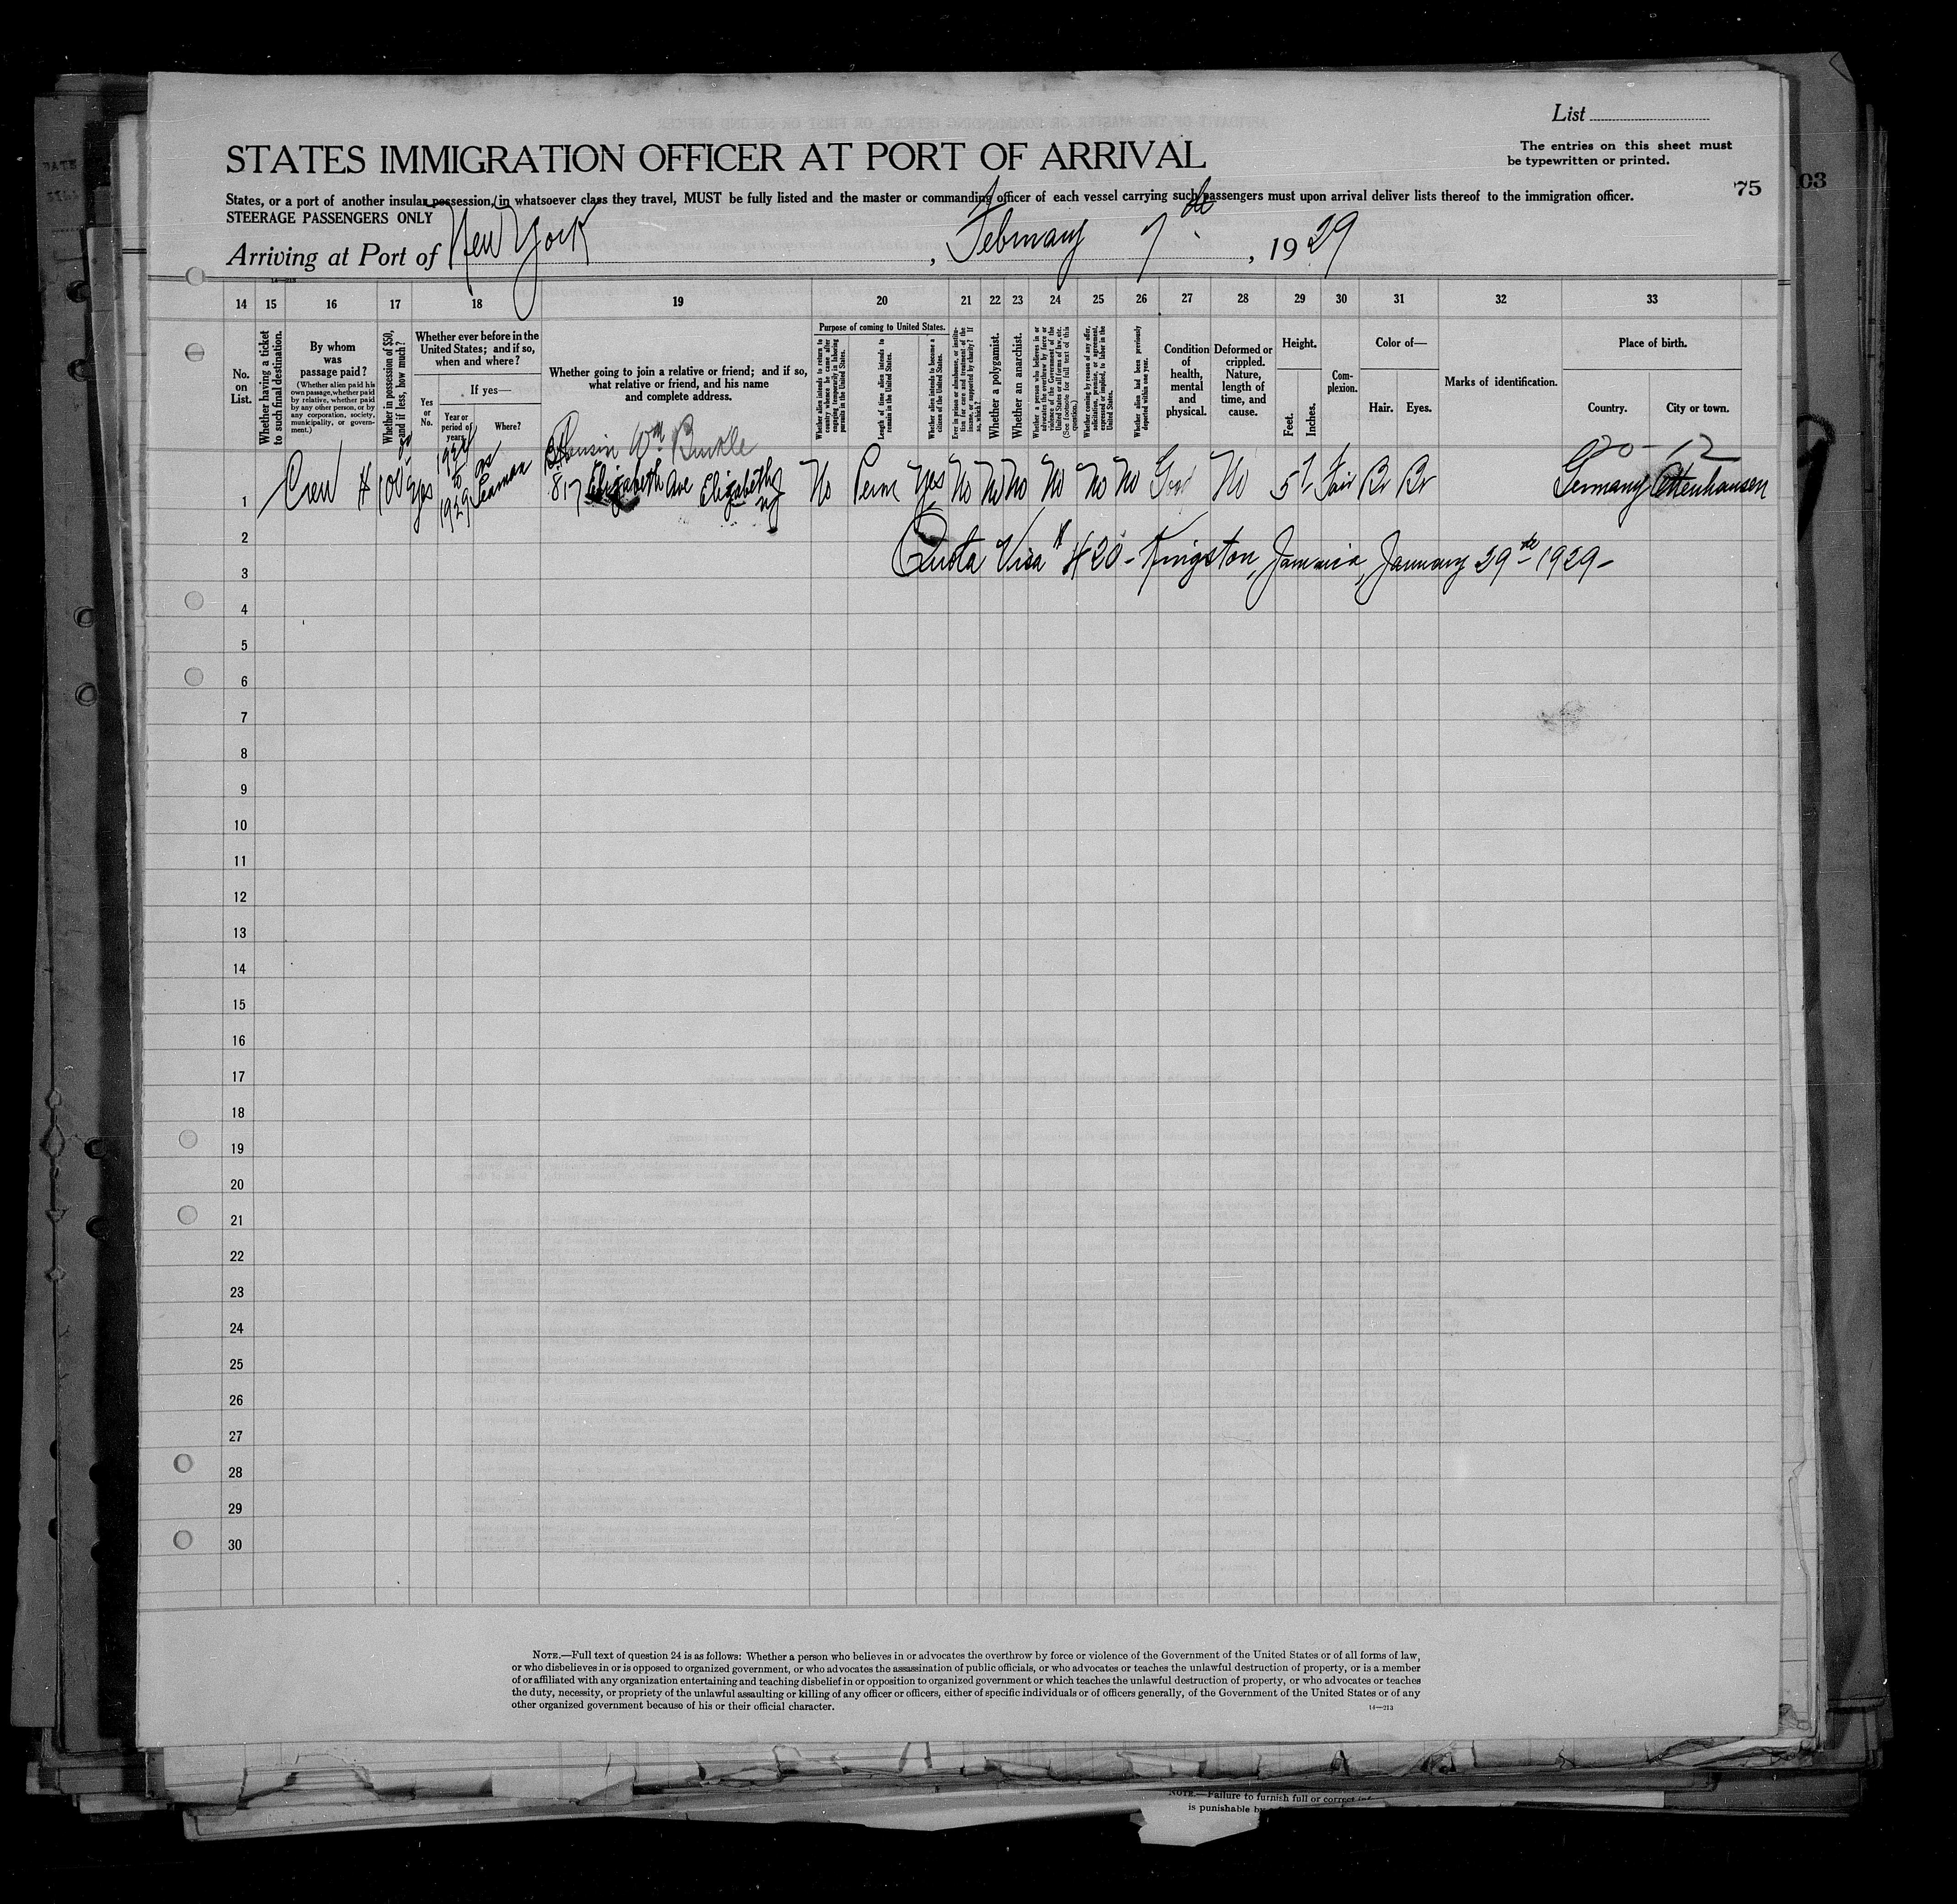 List
The entries on this sheet must
be typewritten or printed.
STATES IMMIGRATION OFFICER AT PORT OF ARRIVAL
75
03
States, or a port of another insular possession, in whatsoever class they travel, MUST be fully listed and the master or commanding officer of each vessel carrying such passengers must upon arrival deliver lists thereof to the immigration officer.
STEERAGE PASSENGERS ONLY
Arriving at Port of New York, February 7th, 1929
14—213
14 15 16 17 18 19 20 21 22 23 24 25 26 27 28 29 30 31 32 33
No.
on
List.
Whether having a ticket
to such final destination.
By whom
was
passage paid?
(Whether alien paid his
own passage, whether paid
by relative, whether paid
by any other person, or by
any corporation, society,
municipality, or govern-
ment.)
Whether in possession of $50,
and if less, how much?
Whether ever before in the
United States; and if so,
when and where?
If yes—
Yes
or
No.
Year or
period of
years.
Where?
Whether going to join a relative or friend; and if so,
what relative or friend, and his name
and complete address.
Purpose of coming to United States.
Whether alien intends to return to
country whence he came after
engaging temporarily in laboring
pursuits in the United States.
Length of time alien intends to
remain in the United States.
Whether alien intends to become a
citizen of the United States.
Ever in prison or almshouse, or institu-
tion for care and treatment of the
insane, or supported by charity? If
so, which?
Whether a polygamist.
Whether an anarchist.
Whether a person who believes in or
advocates the overthrow by force or
violence of the Government of the
United States or all forms of law, etc.
(See footnote for full text of this
question.)
Whether coming by reason of any offer,
solicitation, promise, or agreement,
expressed or implied, to labor in the
United States.
Whether alien had been previously
deported within one year.
Condition
of
health,
mental
and
physical.
Deformed or
crippled.
Nature,
length of
time, and
cause.
Height.
Feet.
Inches.
Com-
plexion.
Color of—
Hair.
Eyes.
Marks of identification.
Place of birth.
Country.
City or town.
Cousin Wm Burkle
1 Crew $100 yes 1924 to 1929 as Seaman 817 Elizabeth Ave Elizabeth NJ No Perm Yes No No No No No No Good No 5 7 Fair Br Br Germany Ottenhausen
2
Quota Visa # 420 - Kingston, Jamaica, January 29th 1929 -
3
4
5
6
7
8
9
10
11
12
13
14
15
16
17
18
19
20
21
22
23
24
25
26
27
28
29
30
NOTE.—Full text of question 24 is as follows: Whether a person who believes in or advocates the overthrow by force or violence of the Government of the United States or of all forms of law,
or who disbelieves in or is opposed to organized government, or who advocates the assassination of public officials, or who advocates or teaches the unlawful destruction of property, or is a member
of or affiliated with any organization entertaining and teaching disbelief in or opposition to organized government or which teaches the unlawful destruction of property, or who advocates or teaches
the duty, necessity, or propriety of the unlawful assaulting or killing of any officer or officers, either of specific individuals or of officers generally, of the Government of the United States or of any
other organized government because of his or their official character.
14—213
NOTE.—Failure to furnish full or correct
is punishable by